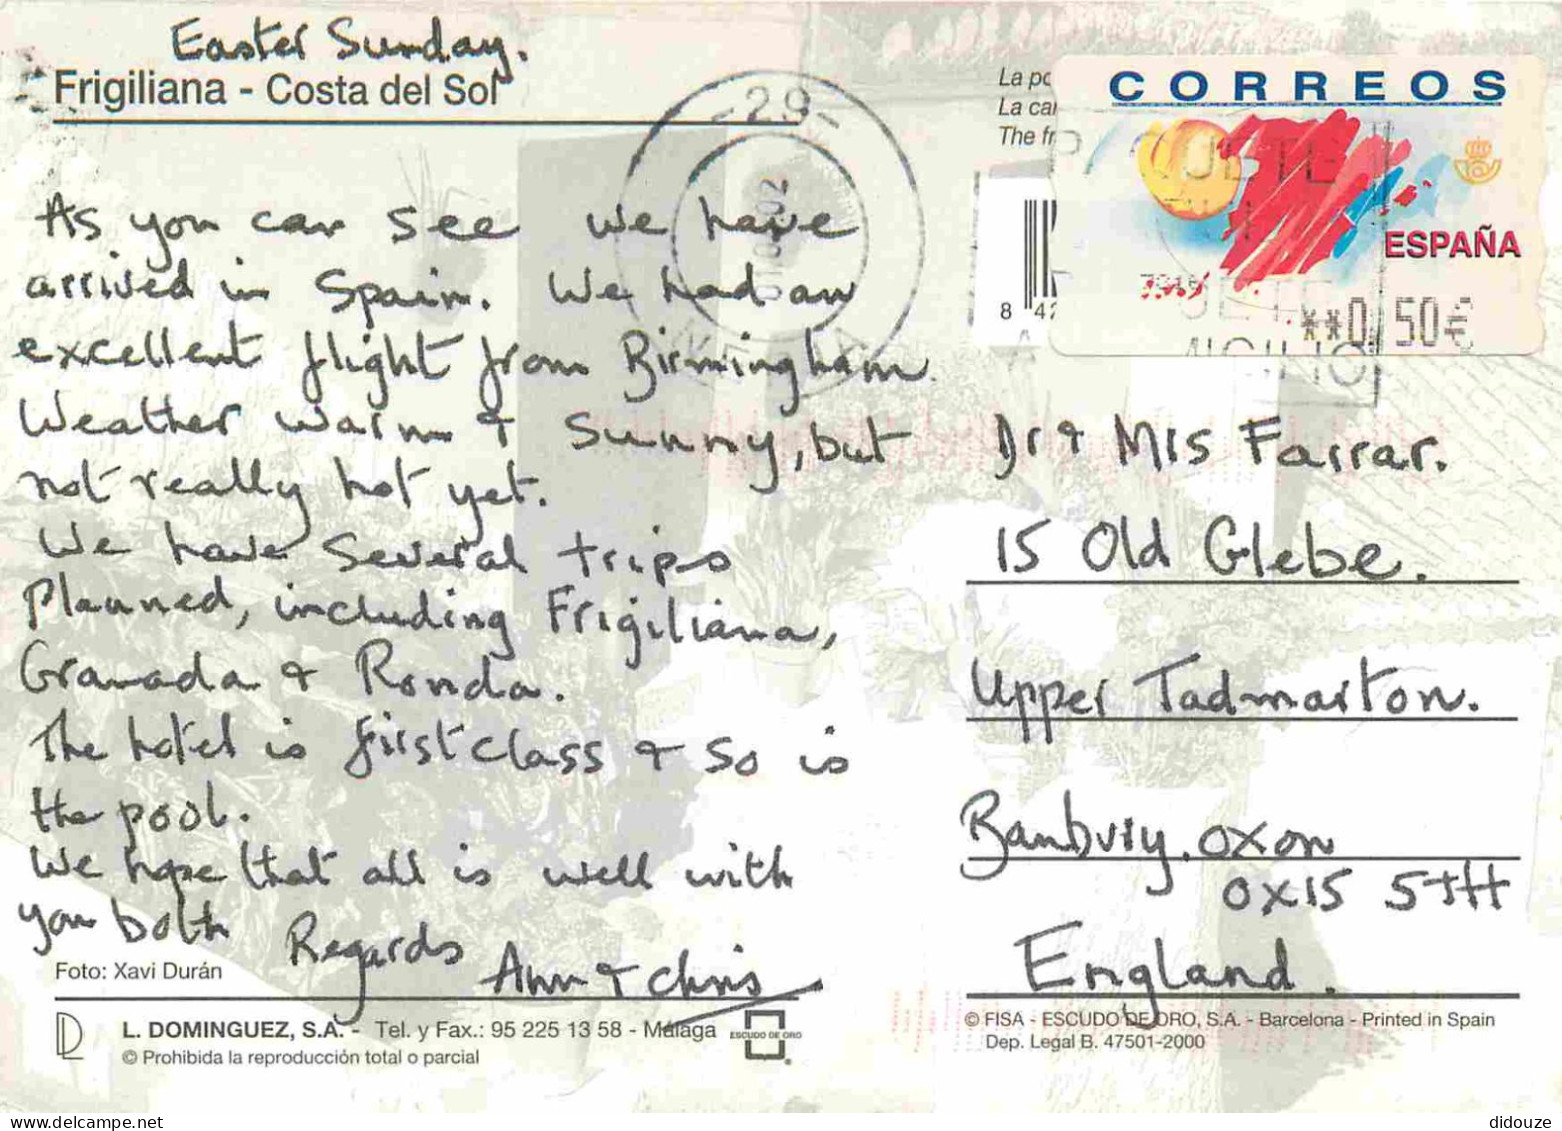 Easter Sunday.
Frigiliana - Costa del Sol
As you can see we have
arrived in Spain. We had an
excellent flight from Birmingham.
Weather warm & sunny, but
not really hot yet.
We have several trips
Planned, including Frigiliana,
Granada & Ronda.
The hotel is first class & so is
the pool.
We hope that all is well with
you both
Regards Ann & Chris
Foto: Xavi Durán
L. DOMINGUEZ, S.A. - Tel. y Fax.: 95 225 13 58 - Málaga
© Prohibida la reproducción total o parcial
ESCUDO DE ORO
-29-
02
La
La
The
8 42
CORREOS
ESPAÑA
**0,50€
Dr & Mrs Farrar.
15 Old Glebe.
Upper Tadmarton.
Banbury. Oxon
OX15 5TH
England.
© FISA - ESCUDO DE ORO, S.A. - Barcelona - Printed in Spain
Dep. Legal B. 47501-2000
delcampe.net
didouze